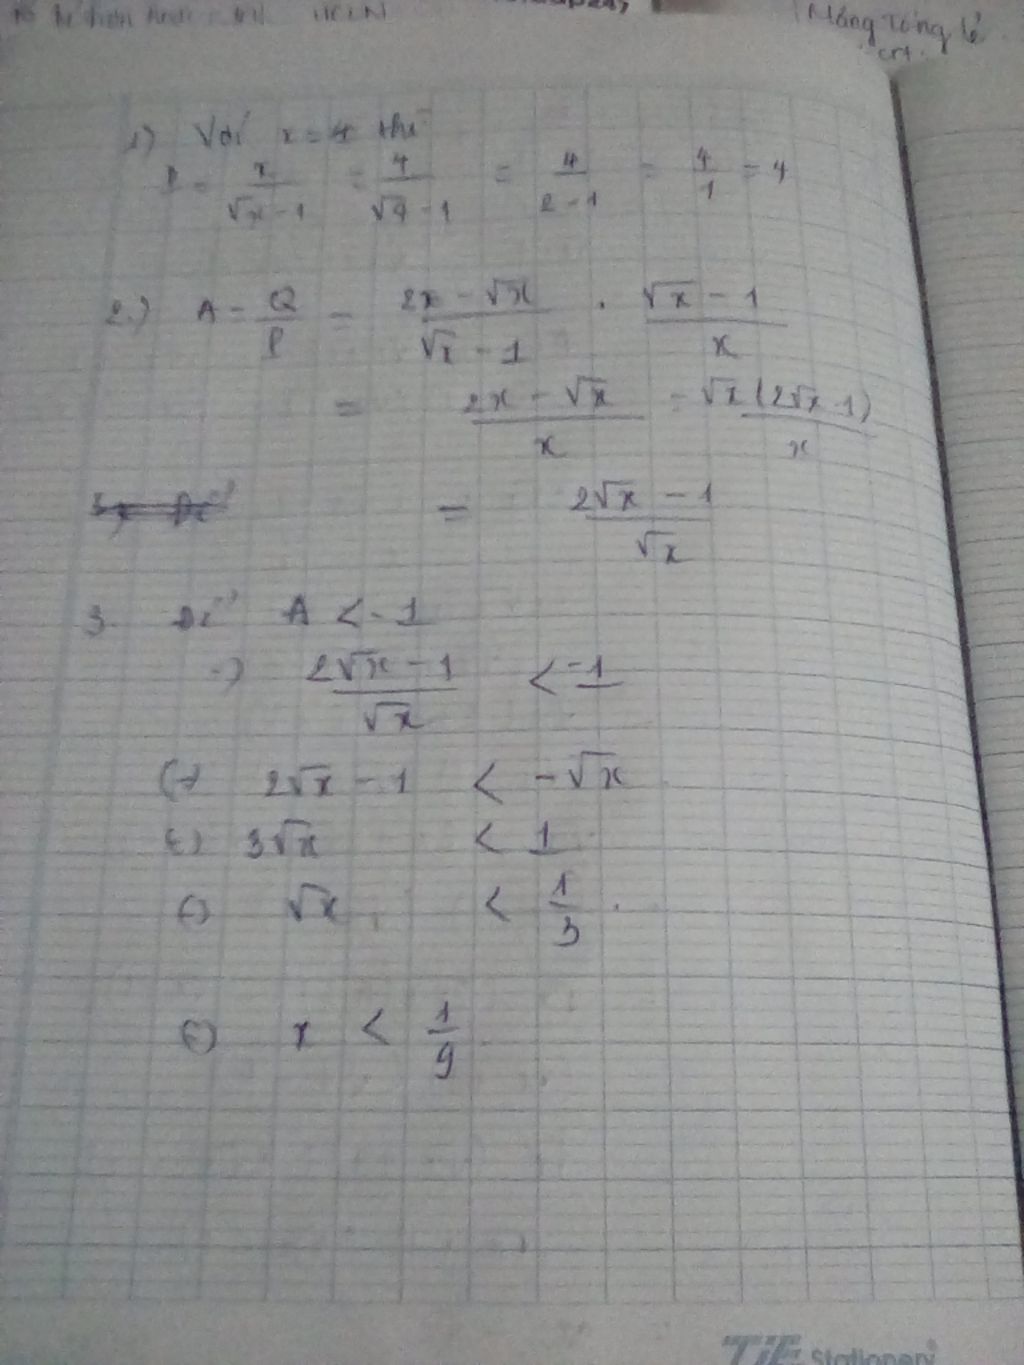 Mông Tổng
1) Với x = 4 thì
P = x/(√x - 1) = 4/(√4 - 1) = 4/(2 - 1) = 4/1 = 4
2.) A = Q/P = (2x - √x)/(√x - 1) . (√x - 1)/x
= (2x - √x)/x = √x(2√x - 1)/x
= (2√x - 1)/√x
3. Để A < -1
=> (2√x - 1)/√x < -1
(=) 2√x - 1 < -√x
(=) 3√x < 1
(=) √x < 1/3
(=) x < 1/9
TiE Stationery